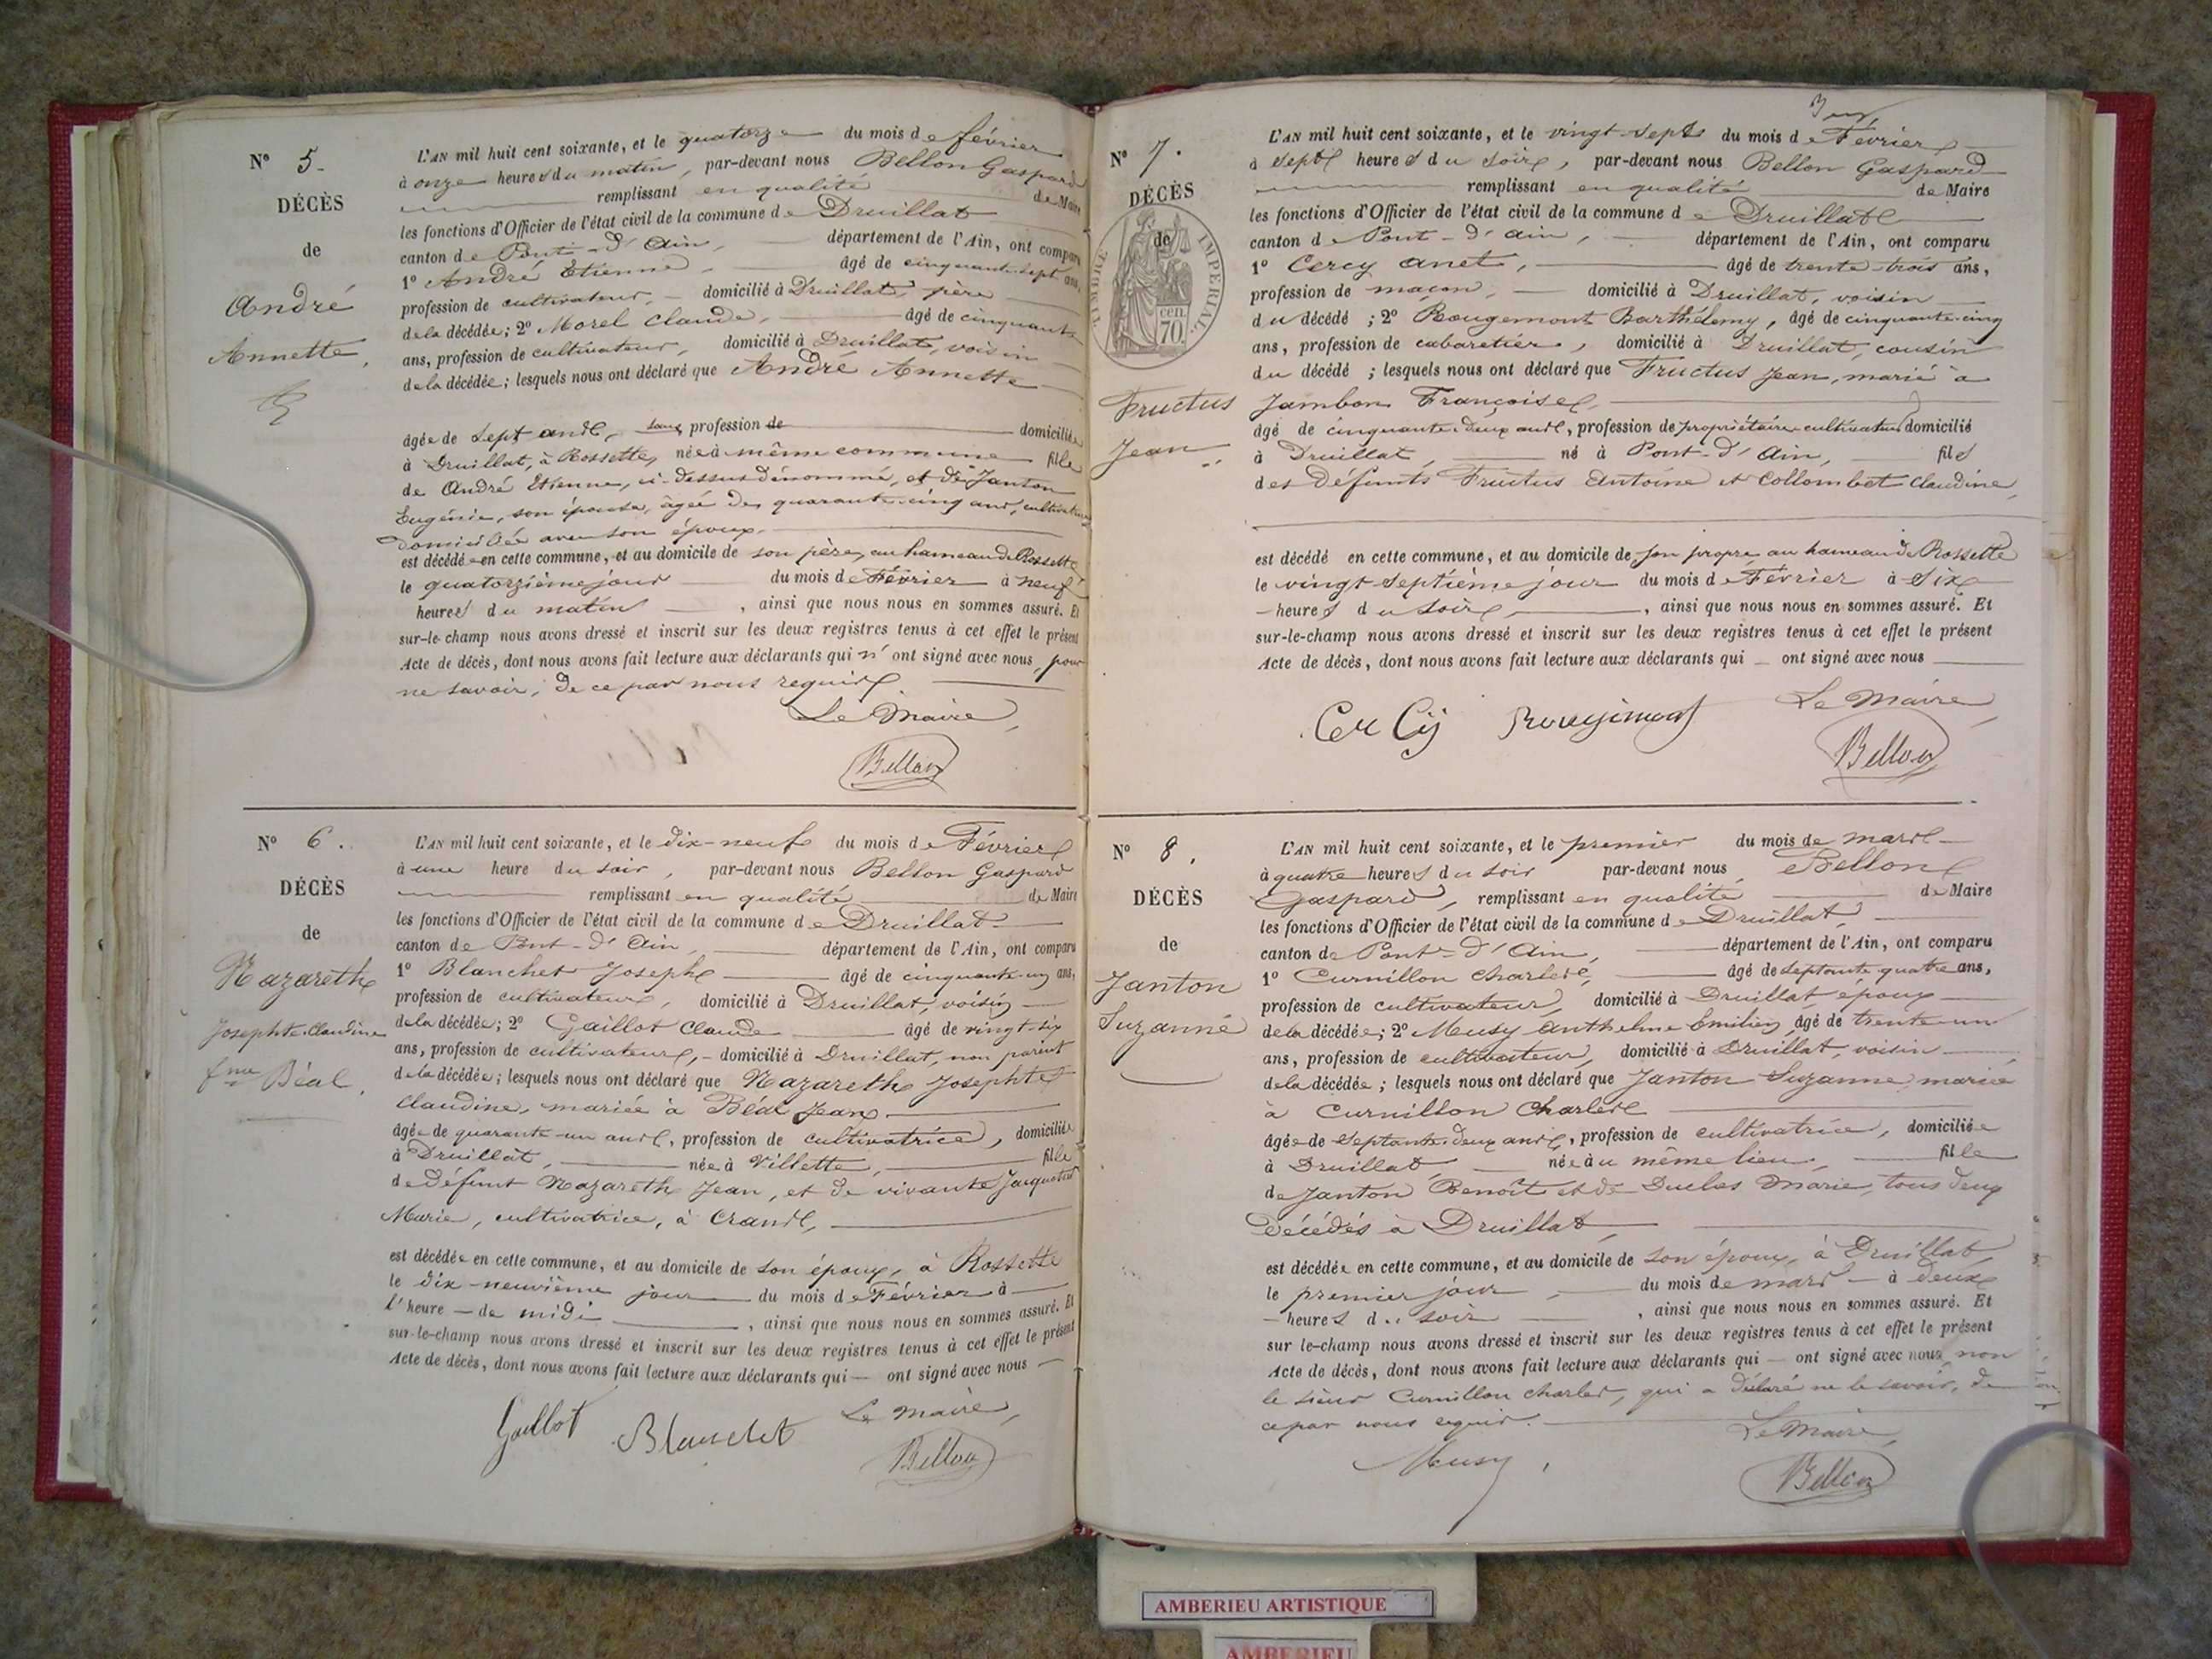 N° 5.
DÉCÈS
de
André
Annette,
L'AN mil huit cent soixante, et le quatorze du mois de février
à onze heures du matin, par-devant nous Bellon Gaspard
remplissant en qualité de Maire
les fonctions d'Officier de l'état civil de la commune de Druillat
canton de Pont-d'Ain, département de l'Ain, ont comparu
1° André Etienne, âgé de cinquante-sept ans,
profession de cultivateur, domicilié à Druillat, père
de la décédée; 2° Morel Claude, âgé de cinquante
ans, profession de cultivateur, domicilié à Druillat, voisin
de la décédée; lesquels nous ont déclaré que André Annette
âgée de sept ans, sans profession de domiciliée
à Druillat, à Rossette, née à même commune fille
de André Etienne, ci-dessus dénommé, et de Janton
Eugénie, son épouse, âgée de quarante-cinq ans, cultivatrice
domiciliée avec son époux.
est décédée en cette commune, et au domicile de son père, au hameau de Rossette
le quatorzième jour du mois de Février à neuf
heures du matin, ainsi que nous nous en sommes assuré. Et
sur-le-champ nous avons dressé et inscrit sur les deux registres tenus à cet effet le présent
Acte de décès, dont nous avons fait lecture aux déclarants qui n'ont signé avec nous, pour
ne savoir, de ce par nous requis
Le Maire,
Bellon
N° 6.
DÉCÈS
de
Nazareth
Josephte Claudine
fme Béal.
L'AN mil huit cent soixante, et le dix-neuf du mois de Février
à une heure du soir, par-devant nous Bellon Gaspard
remplissant en qualité de Maire
les fonctions d'Officier de l'état civil de la commune de Druillat
canton de Pont-d'Ain, département de l'Ain, ont comparu
1° Blanchet Joseph âgé de cinquante-un ans,
profession de cultivateur, domicilié à Druillat, voisin
de la décédée; 2° Gaillot Claude âgé de vingt-six
ans, profession de cultivateur, domicilié à Druillat, non parent
de la décédée; lesquels nous ont déclaré que Nazareth Josephte
Claudine, mariée à Béal Jean
âgée de quarante-un ans, profession de cultivatrice, domiciliée
à Druillat, née à Villette, fille
de défunt Nazareth Jean, et de vivante Jacquemet
Marie, cultivatrice, à Crans,
est décédée en cette commune, et au domicile de son époux, à Rossette
le dix-neuvième jour du mois de Février à
l'heure de midi, ainsi que nous nous en sommes assuré. Et
sur-le-champ nous avons dressé et inscrit sur les deux registres tenus à cet effet le présent
Acte de décès, dont nous avons fait lecture aux déclarants qui ont signé avec nous
Gaillot Blanchet Le Maire,
Bellon
N° 7.
DÉCÈS
de
TIMBRE IMPÉRIAL
70 cen.
Fructus
Jean
L'AN mil huit cent soixante, et le vingt-sept du mois de Février
à sept heures du soir, par-devant nous Bellon Gaspard
remplissant en qualité de Maire
les fonctions d'Officier de l'état civil de la commune de Druillat
canton de Pont-d'Ain, département de l'Ain, ont comparu
1° Cercy Anet, âgé de trente-trois ans,
profession de maçon, domicilié à Druillat, voisin
du décédé; 2° Rougemont Barthélemy, âgé de cinquante-cinq
ans, profession de cabaretier, domicilié à Druillat, cousin
du décédé; lesquels nous ont déclaré que Fructus Jean, marié à
Jambon Françoise
âgé de cinquante-deux ans, profession de propriétaire-cultivateur domicilié
à Druillat, né à Pont-d'Ain, fils
des défunts Fructus Antoine et Collombet Claudine,
est décédé en cette commune, et au domicile de son propre au hameau de Rossette
le vingt-septième jour du mois de Février à six
heures du soir, ainsi que nous nous en sommes assuré. Et
sur-le-champ nous avons dressé et inscrit sur les deux registres tenus à cet effet le présent
Acte de décès, dont nous avons fait lecture aux déclarants qui ont signé avec nous
Cercy Rougemont Le Maire
Bellon
N° 8.
DÉCÈS
de
Janton
Suzanne
L'AN mil huit cent soixante, et le premier du mois de mars
à quatre heures du soir par-devant nous Bellon
Gaspard, remplissant en qualité de Maire
les fonctions d'Officier de l'état civil de la commune de Druillat,
canton de Pont-d'Ain, département de l'Ain, ont comparu
1° Curnillon Charles, âgé de septante-quatre ans,
profession de cultivateur, domicilié à Druillat époux
de la décédée; 2° Musy Anthelme Emilien, âgé de trente-un
ans, profession de cultivateur, domicilié à Druillat, voisin
de la décédée; lesquels nous ont déclaré que Janton Suzanne, mariée
à Curnillon Charles
âgée de septante-deux ans, profession de cultivatrice, domiciliée
à Druillat née à au même lieu, fille
de Janton Benoît et de Duclos Marie, tous deux
décédés à Druillat,
est décédée en cette commune, et au domicile de son époux, à Druillat,
le premier jour du mois de mars à deux
heures du soir, ainsi que nous nous en sommes assuré. Et
sur le-champ nous avons dressé et inscrit sur les deux registres tenus à cet effet le présent
Acte de décès, dont nous avons fait lecture aux déclarants qui ont signé avec nous, non
le sieur Curnillon Charles, qui a déclaré ne le savoir, de
ce par nous requis.
Le Maire,
Musy,
Bellon
AMBERIEU ARTISTIQUE
AMBERIEU